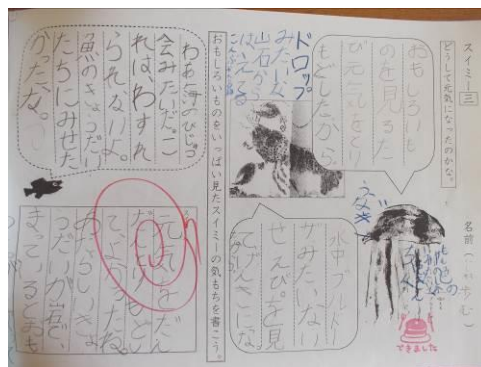 スイミー 三
どうして元気になったのかな。
名前
おもしろいも
のを見るた
び元気をとり
もどしたから
水中ブルドー
ザーみたいない
せえびを見
てげんきにな
ドロップ
みたいな
岩から
はえてる
おもしろいものをいっぱい見たスイミーの気もちを書こう。
わあ海のびじゅつ
会みたいだ。こ
れはわすれ
られないよ。
魚のきょうだい
たちにみせた
かったな。
元気をだん
だんとりもどし
てよかったね。
あたらしいきょ
うだいが岩で、
まっているとおも
できました